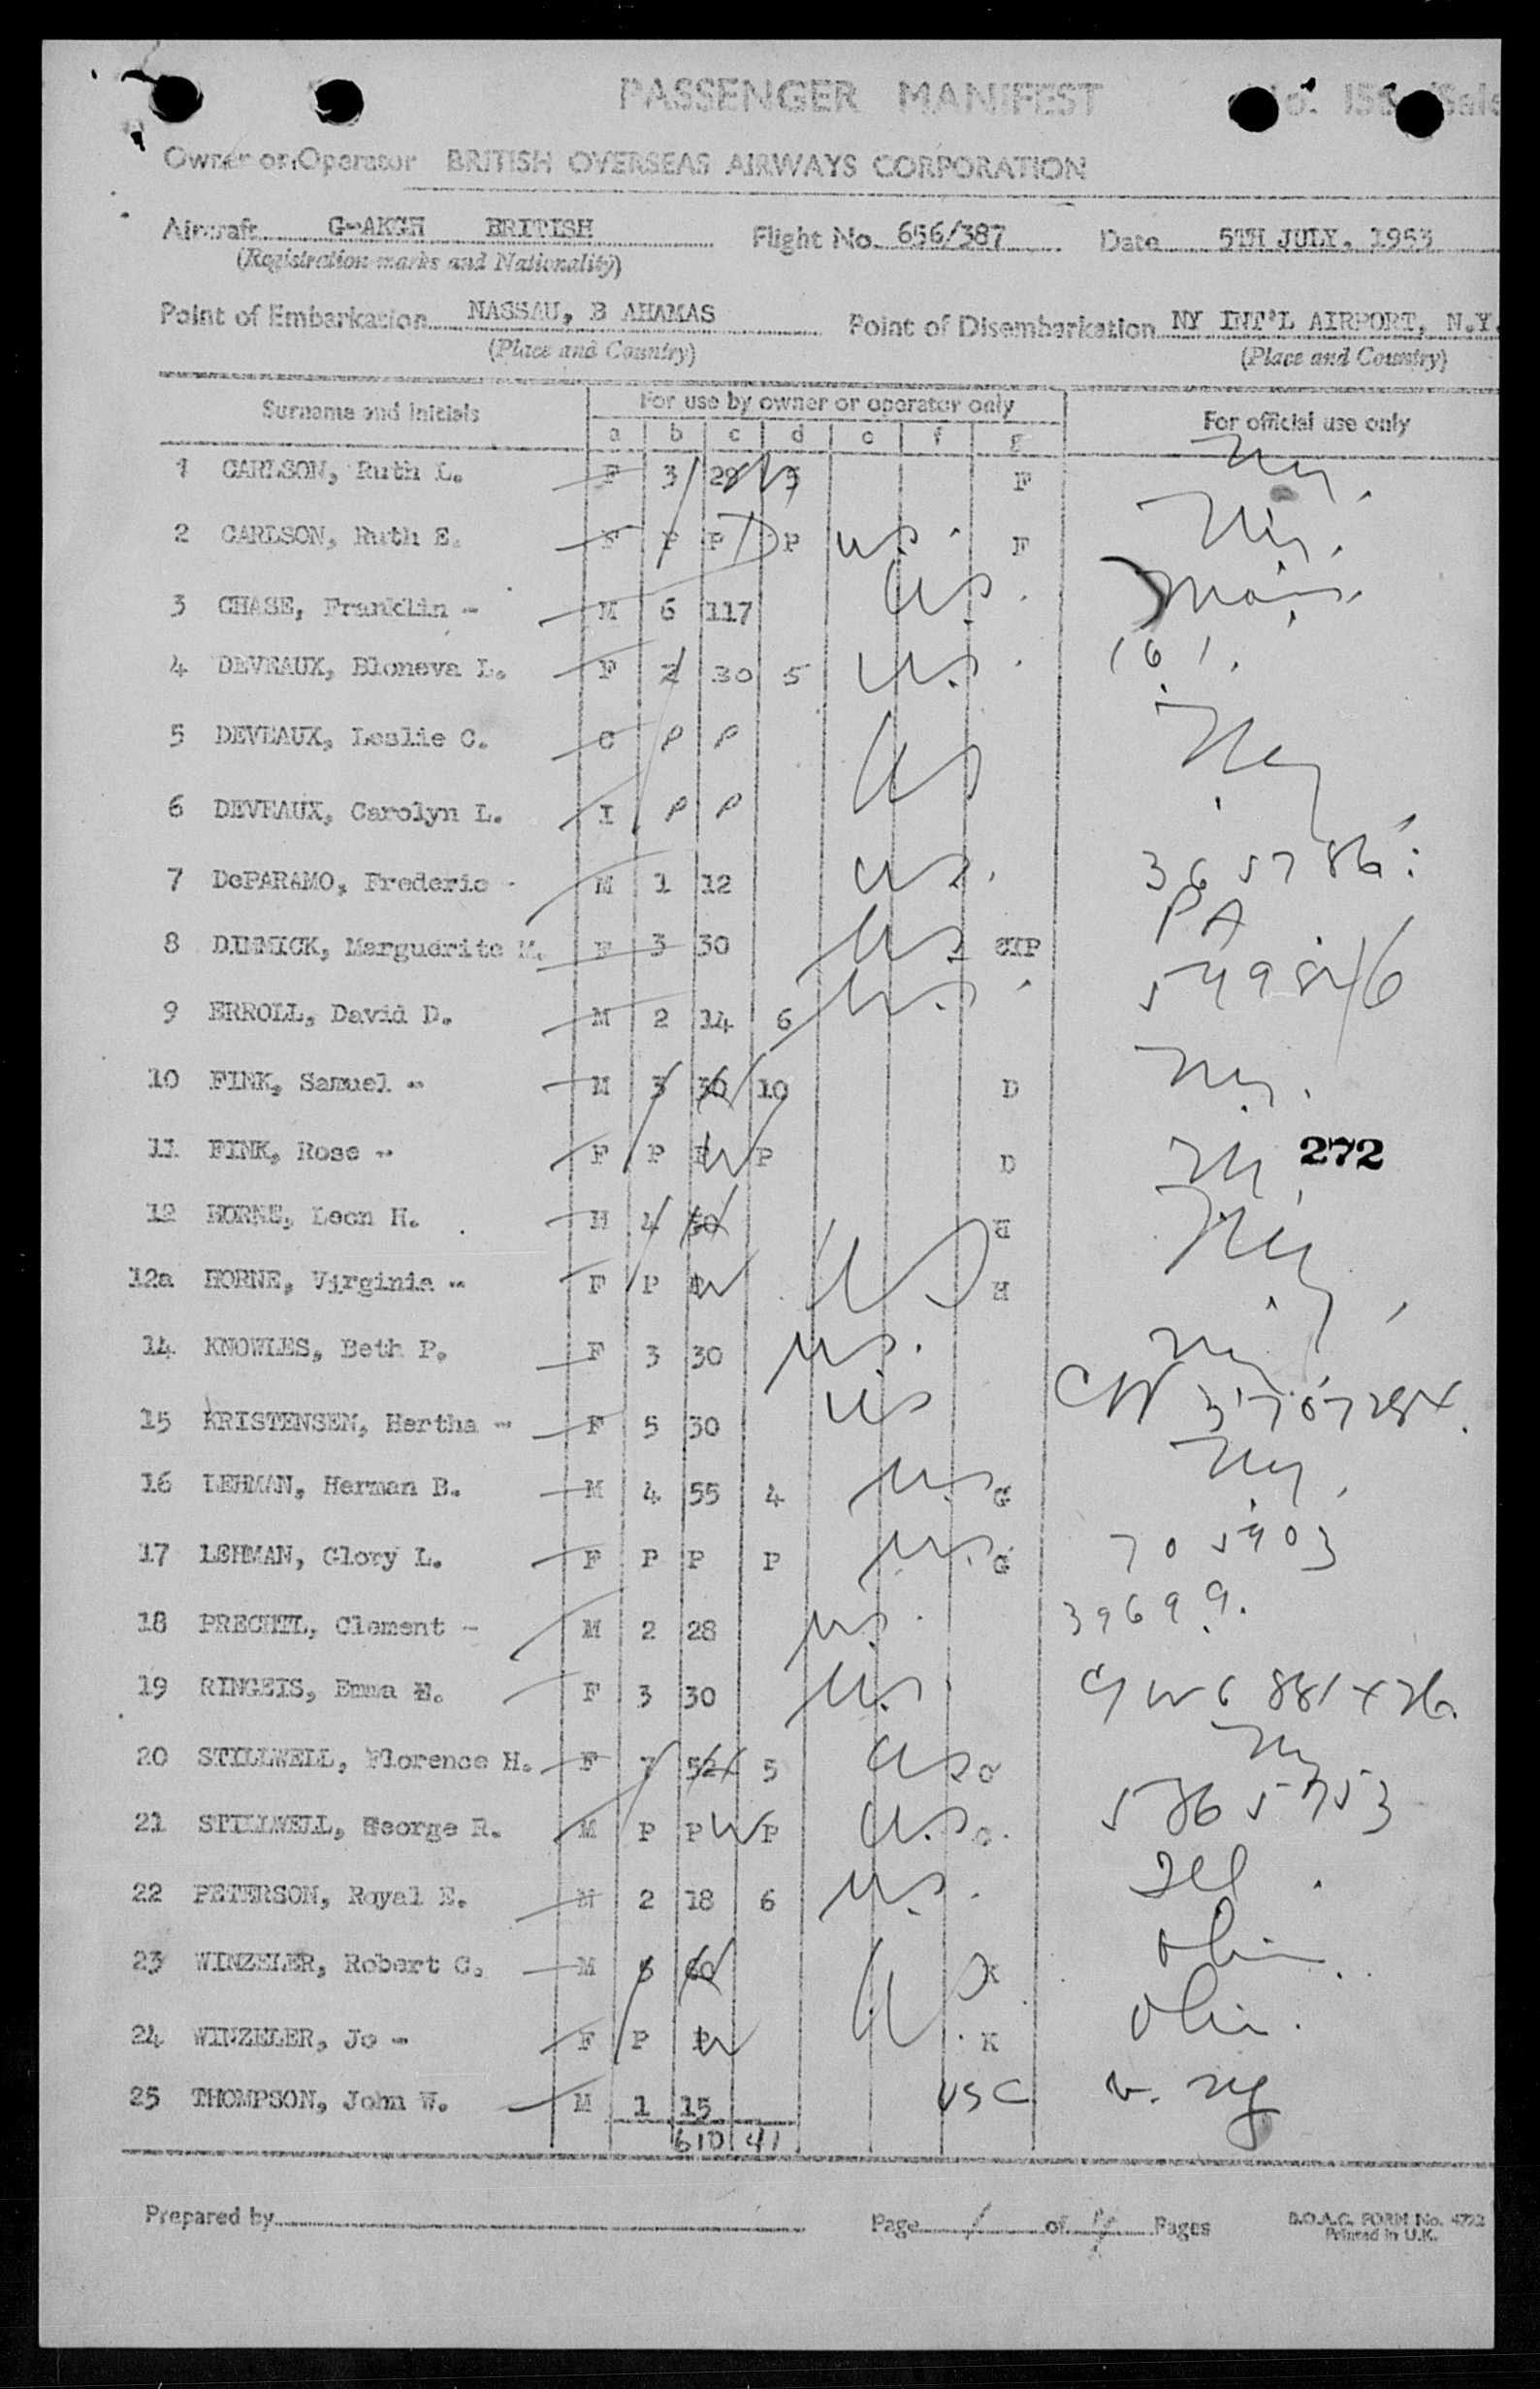 PASSENGER MANIFEST
Owner or Operator BRITISH OVERSEAS AIRWAYS CORPORATION
Aircraft G-AKGH BRITISH Flight No. 656/387 Date 5TH JULY, 1953
(Registration marks and Nationality)
Point of Embarkation NASSAU, B AHAMAS Point of Disembarkation NY INT'L AIRPORT, N.Y.
(Place and Country) (Place and Country)
Surname and initials For use by owner or operator only For official use only
a b c d e f g
1 CARLSON, Ruth L. F 3 5 F Ny.
2 CARLSON, Ruth E. F P P P us. F Ny.
3 CHASE, Franklin - M 6 117 us.
4 DEVEAUX, Bloneva L. F 2 30 5 us. 161.
5 DEVEAUX, Leslie C. C P P us Ny
6 DEVEAUX, Carolyn L. I P P
7 DePARAMO, Frederic - M 1 12 us. 365786
PA
8 DIMMICK, Marguerite M. F 3 30 us
9 ERROLL, David D. M 2 14 6 us.
10 FINK, Samuel - M 3 30 10 D Ny.
11 FINK, Rose - F P P P D Ny 272
12 HORNE, Leon H. M 4 50 H Ny
12a HORNE, Virginia - F P P us H
14 KNOWLES, Beth P. F 3 30 us. Ny
15 KRISTENSEN, Hertha - F 5 30 us
16 LEHMAN, Herman B. M 4 55 4 us G Ny.
17 LEHMAN, Glory L. F P P P us G 705903
18 PRECHTL, Clement - M 2 28 us. 39699.
19 RINGEIS, Emma E. F 3 30 us.
20 STILLWELL, Florence H. F 7 52 5 us Ny
21 STILLWELL, George R. M P P P us
22 PETERSON, Royal E. M 2 18 6 us. Ill.
23 WINZELER, Robert C. M 6 60 us K Ohio
24 WINZELER, Jo - F P P K Ohio.
25 THOMPSON, John W. M 1 15 USC Ny
610 41
Prepared by Page 1 of Pages B.O.A.C. FORM No. 4722
Printed in U.K.